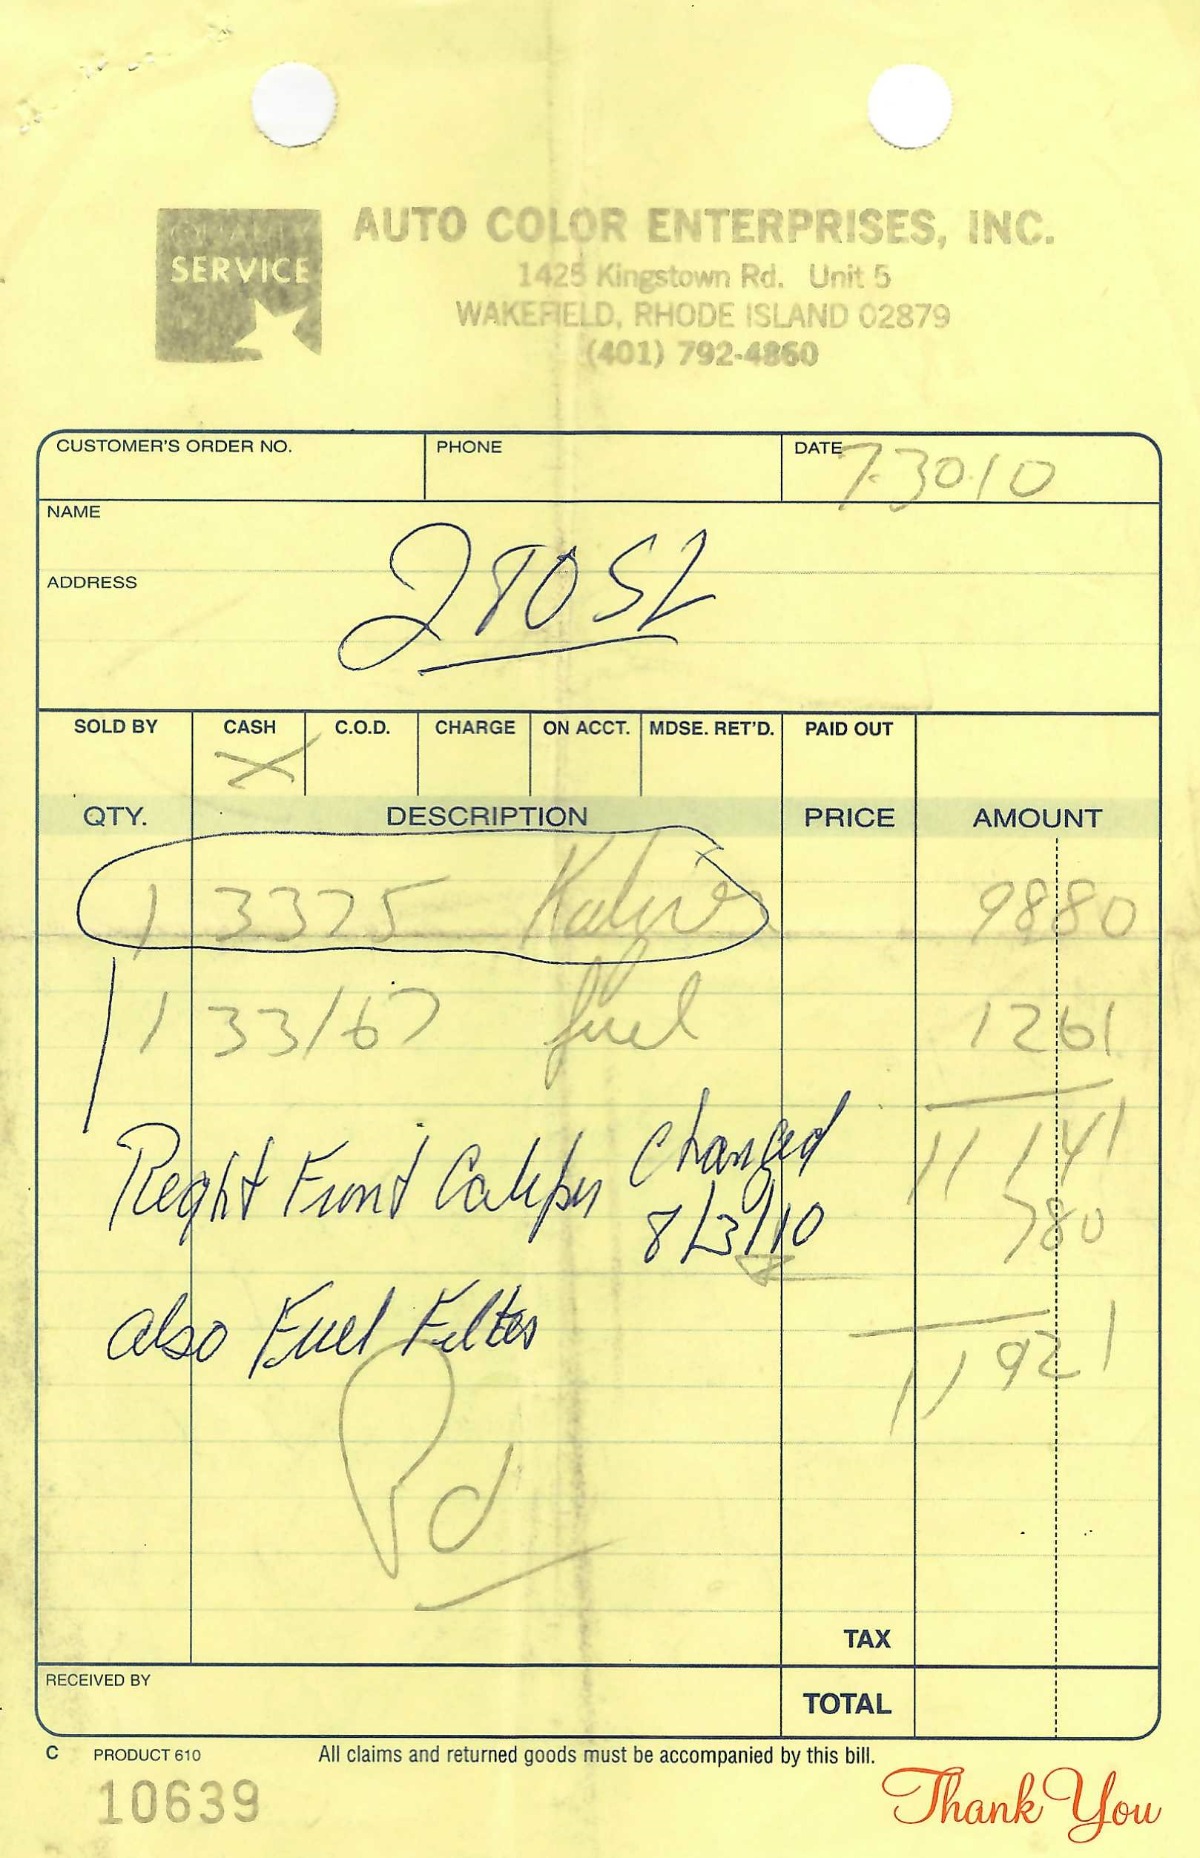 QUALITY
SERVICE
AUTO COLOR ENTERPRISES, INC.
1425 Kingstown Rd. Unit 5
WAKEFIELD, RHODE ISLAND 02879
(401) 792-4860
CUSTOMER'S ORDER NO. PHONE DATE 7-30-10
NAME
280SL
ADDRESS
SOLD BY CASH C.O.D. CHARGE ON ACCT. MDSE. RET'D. PAID OUT
X
QTY. DESCRIPTION PRICE AMOUNT
1 3375 9880
1 33167 fuel 1261
Right Front Caliper Changed 11141
8/3/10 780
also Fuel Filter 11921
Pd
TAX
RECEIVED BY TOTAL
C PRODUCT 610 All claims and returned goods must be accompanied by this bill.
10639 Thank You